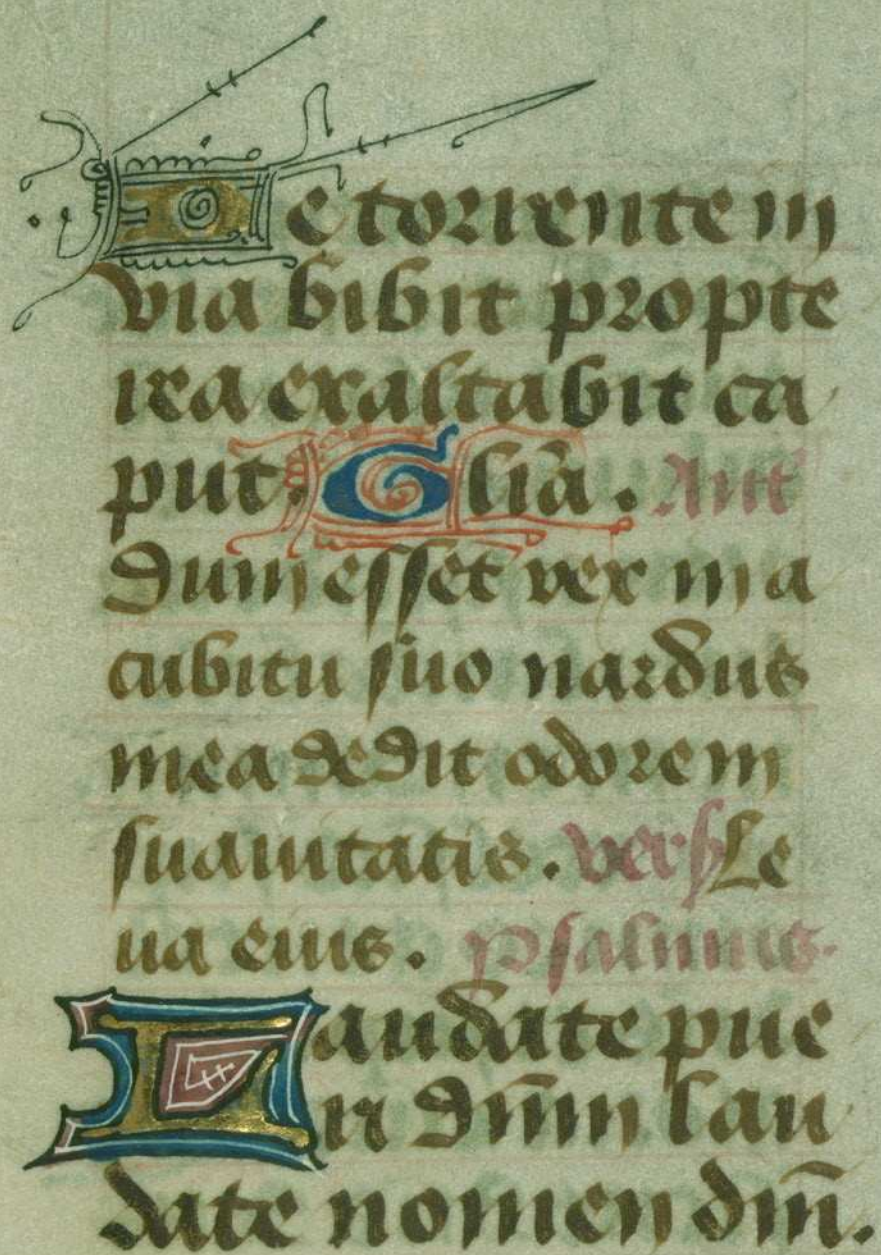 De torrente in
via bibit propte
rea exaltabit ca
put. Glīa. Ant
dum esset rex in a
cubitu suo nardus
mea dedit odorem
suauitatis. vers Le
ua eius. psalmus.
Laudate pue
ri dn̄m lau
date nomen dn̄i.